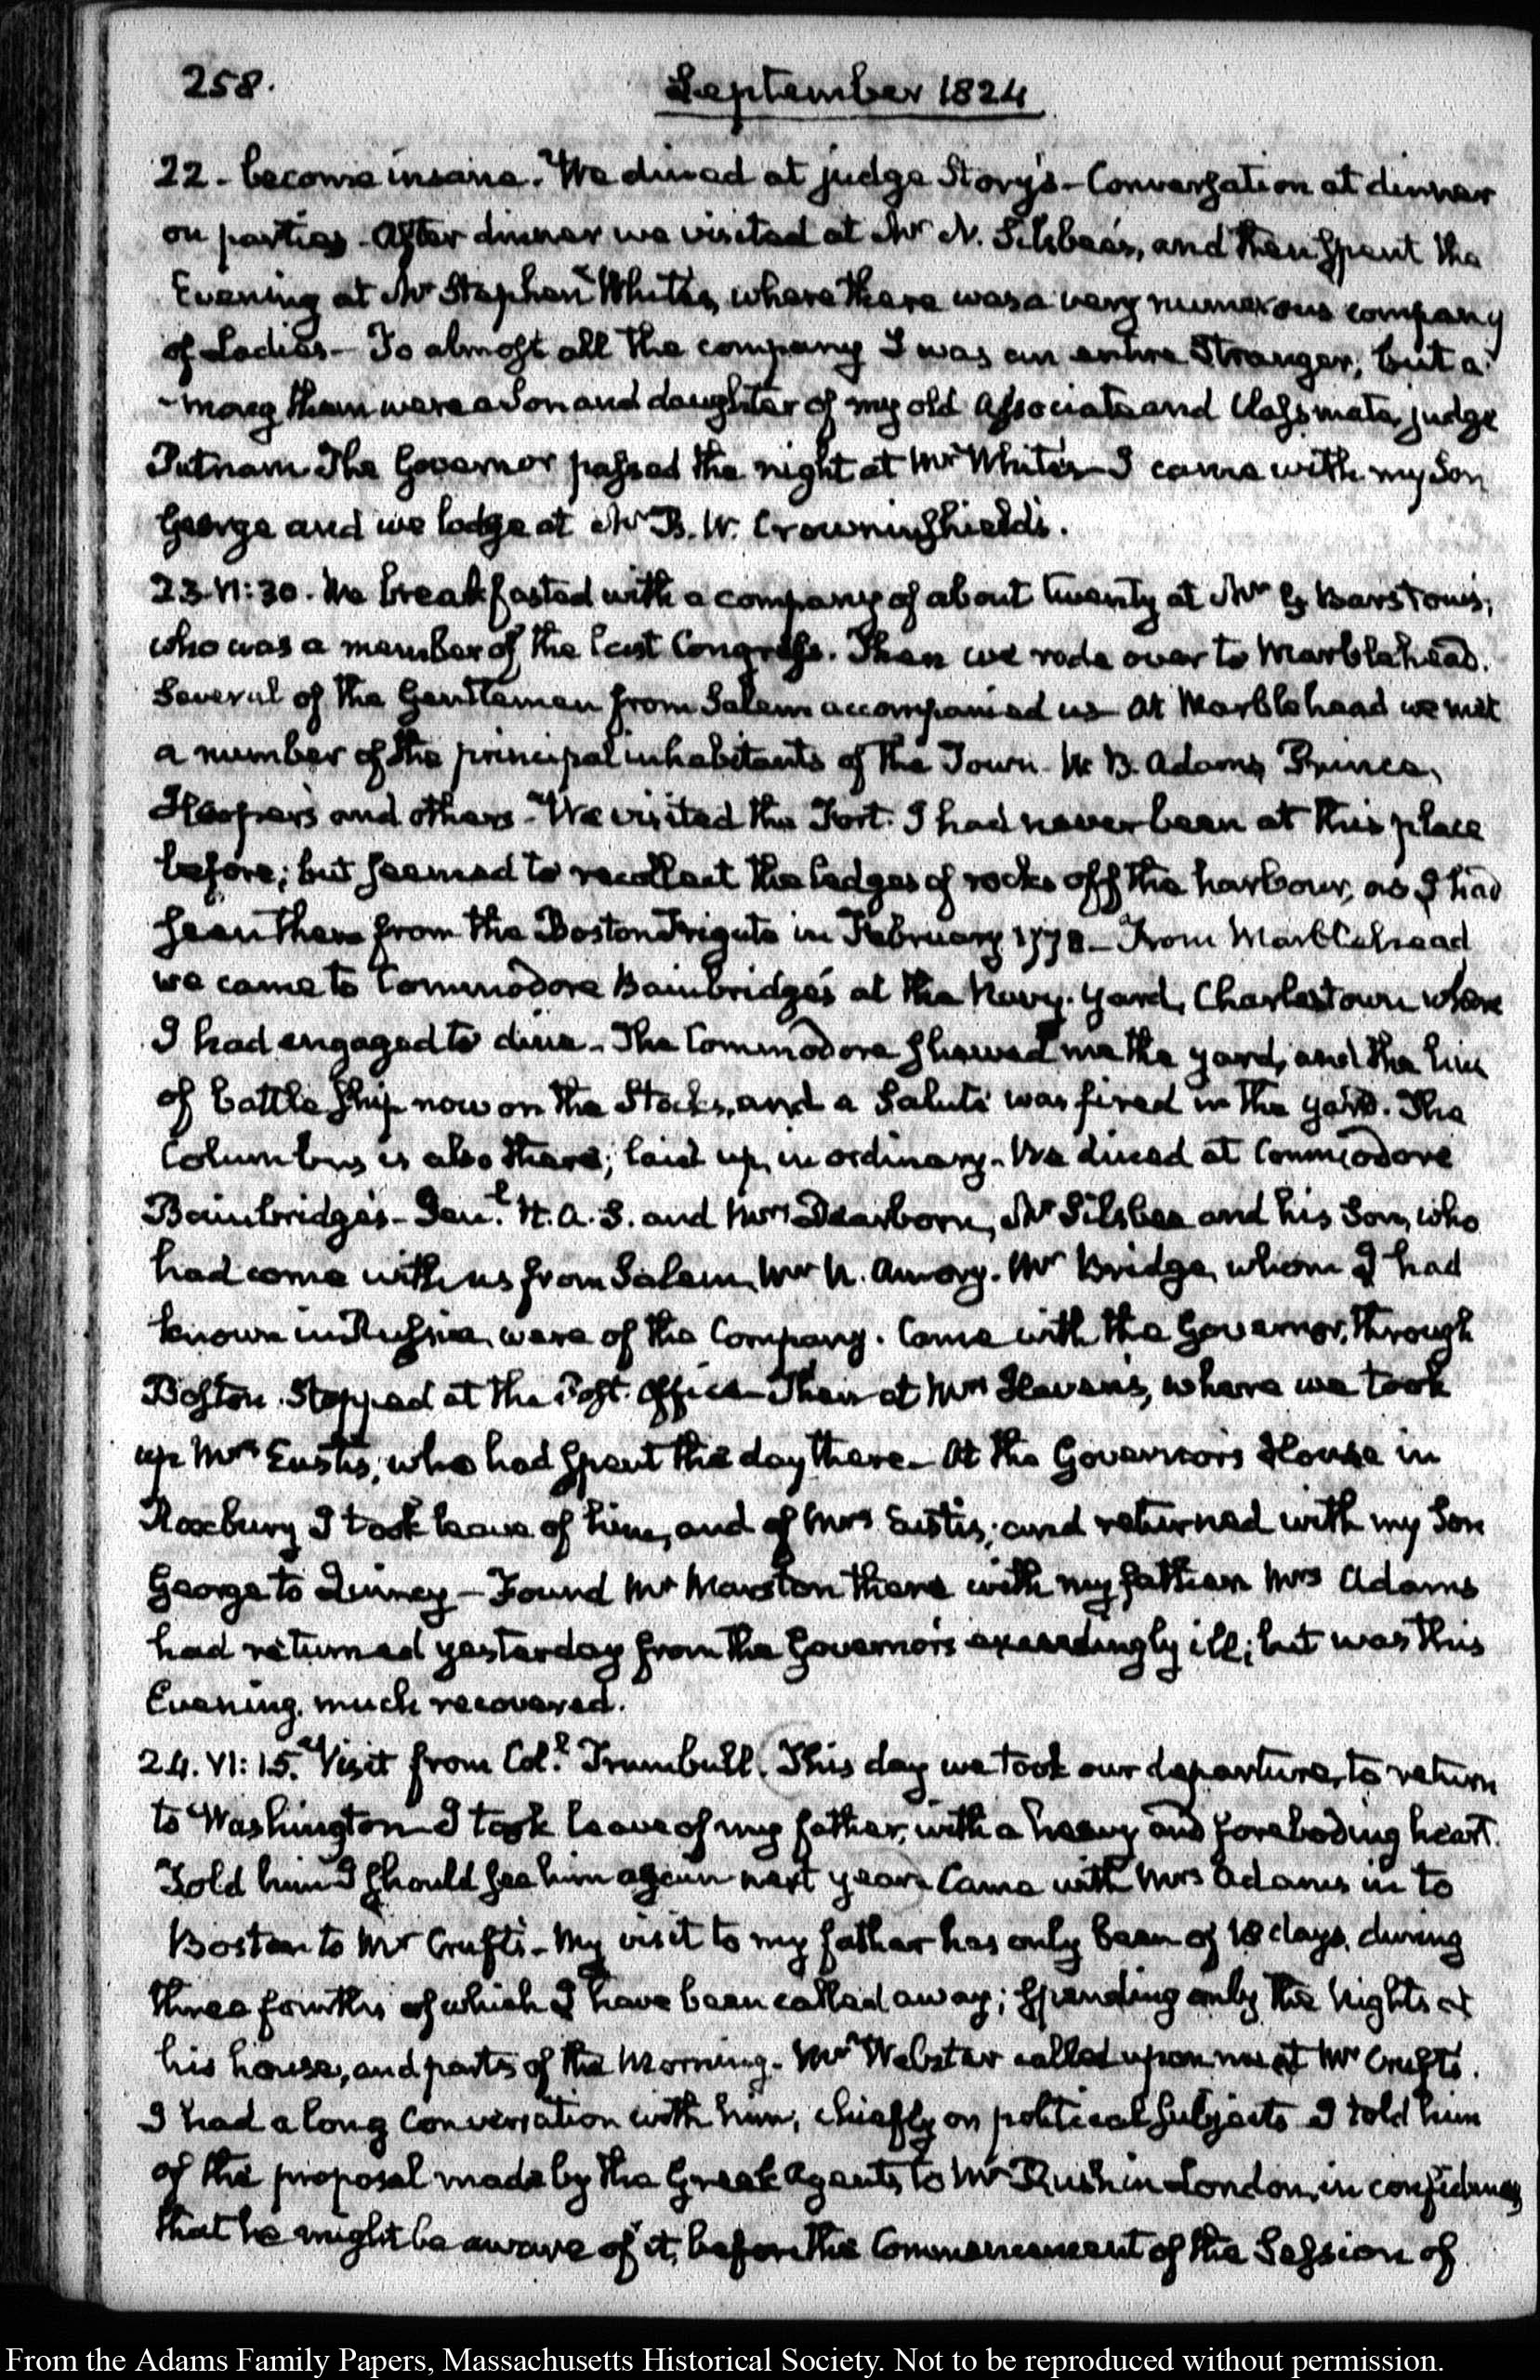 258.
September 1824
22 - become insane. We dined at judge Story's - Conversation at dinner
on parties - After dinner we visited at Mr. N. Silsbee's, and then spent the
Evening at Mr Stephen White's, where there was a very numerous company
of Ladies - To almost all the company I was an entire Stranger, but a-
-mong them were a Son and daughter of my old Associate and Classmate, judge
Putnam. The Governor passed the night at Mr White's - I came with my Son
George and we lodge at Mr B. W. Crowninshield's.
23. VI:30. We breakfasted with a company of about twenty at Mr G. Barstow's,
who was a member of the last Congress. Then we rode over to Marblehead.
Several of the Gentlemen from Salem accompanied us - At Marblehead we met
a number of the principal inhabitants of the Town - W. B. Adams, Prince,
Hooper's and others - We visited the Fort. I had never been at this place
before; but seemed to recollect the ledges of rocks off the harbour, as I had
seen them from the Boston Frigate in February 1778 - From Marblehead
we came to Commodore Bainbridge's at the Navy-Yard, Charlestown where
I had engaged to dine - The Commodore shewed me the yard, and the line
of battle Ship now on the Stocks, and a Salute was fired in the yard. The
Columbus is also there; laid up in ordinary - We dined at Commodore
Bainbridge's - Genl. H. A. S. and Mrs Dearborn, Mr Silsbee and his Son, who
had come with us from Salem, Mr N. Amory. Mr Bridge, whom I had
known in Russia, were of the Company. Came with the Governor, through
Boston. Stopped at the Post-Office - Then at Mrs Haven's, where we took
up Mrs Eustis, who had spent the day there - At the Governor's House in
Roxbury I took leave of him, and of Mrs Eustis; and returned with my Son
George to Quincy - Found Mr Marston there with my father. Mrs Adams
had returned yesterday from the Governor's exceedingly ill; but was this
Evening much recovered.
24. VI:15. Visit from Coll. Trumbull. This day we took our departure, to return
to Washington - I took leave of my father, with a heavy and foreboding heart.
Told him I should see him again next year. Came with Mrs Adams in to
Boston to Mr Cruft's - My visit to my father has only been of 18 days, during
three fourths of which I have been called away; spending only the Nights at
his house, and parts of the Morning. Mr Webster called upon me at Mr Cruft's.
I had a long Conversation with him, chiefly on political subjects - I told him
of the proposal made by the Greek Agents to Mr Rush in London, in confidence,
that he might be aware of it, before the Commencement of the Session of
From the Adams Family Papers, Massachusetts Historical Society. Not to be reproduced without permission.